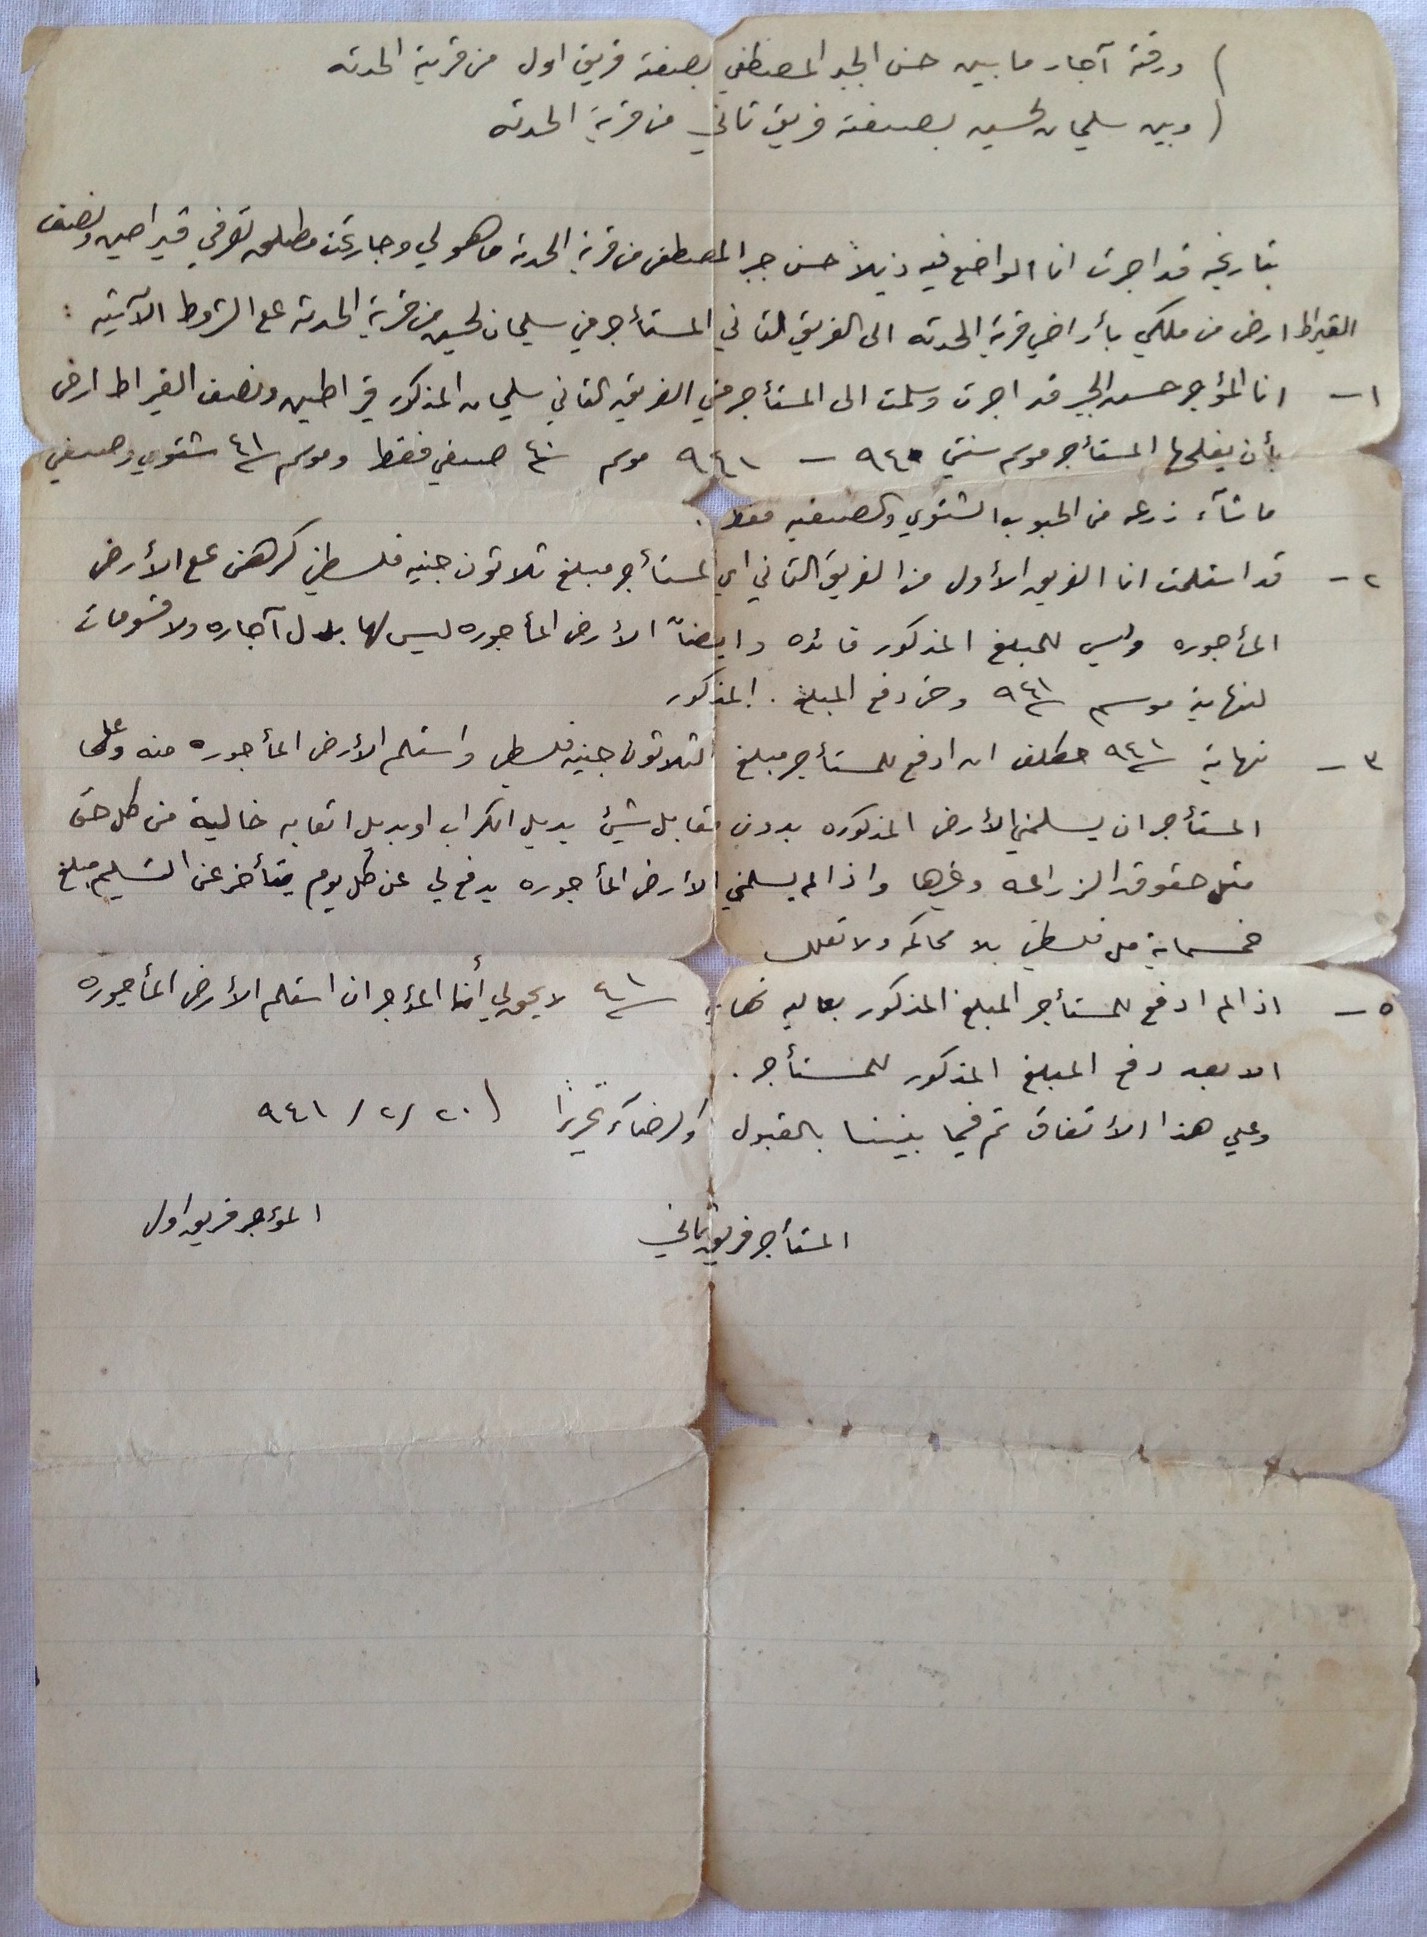 ( ورقة آجار ما بين حسن الجبر المصطفى بصفة فريق اول من قرية الحدثه
( وبين سليمان لحسين بصفة فريق تاني من قرية الحدثه
بتاريخه قد اجرت انا الواضع فيه ذيلاً حسن جبر المصطفى من قرية الحدثه ما هو لي وجار تحت مطلق تصرفي قيراطين ونصف
القيراط ارض من ملكي بأراضي قرية الحدثه الى الفريق التاني المستأجر مني سليمان لحسين من قرية الحدثه على الشروط الآتية :
١ – انا المؤجر حسن الجبر قد اجرت وسلمت الى المستأجر مني الفريق التاني سليمان المذكور قيراطين ونصف القيراط ارض
بأن يفلحها المستأجر موسم سنتي ٩٤٠ – ٩٤١ موسم سنة ٤٠ صيفي فقط وموسم سنة ٤١ شتوي وصيفي
ما شآء زرعه من الحبوب الشتوي والصيفيه فقط .
٢ – قد استلمت انا الفريق الأول من الفريق التاني اي المستأجر مبلغ تلاتون جنيه فلسطيني كرهن على الأرض
المأجوره وليس للمبلغ المذكور فائده وايضاً الأرض المأجوره ليس لها بدل آجاره ولا قسومات
لنهاية موسم سنة ٩٤١ وحين دفع المبلغ . المذكور
٣ – نهاية سنة ٩٤١ مكلف ان ادفع للمستأجر مبلغ التلاتون جنيه فلسطيني واستلم الأرض المأجوره منه وعلى
المستأجر ان يسلمني الأرض المذكوره بدون مقابل شيئ بديل اكراب او بديل اتعابه خالية من كل حق
مثل حقوق الزراعه وغيرها واذا لم يسلمني الأرض المأجوره يدفع لي عن كل يوم يتأخر عن التسليم مبلغ
خمسماية مل فلسطيني بلا محاكمه ولا تعلل
٥ – اذا لم ادفع للمستأجر المبلغ المذكور بعاليه نهاية سنة ٤١ لا يحق لي أنا المؤجر ان استلم الأرض المأجوره
الا بعد دفع المبلغ المذكور للمستأجر .
وعلى هذا الأتفاق تم فيما بيننا بالقبول والرضاء تحريراً ٢٠ / ٢ / ٩٤١
المستأجر فريق تاني
المؤجر فريق اول